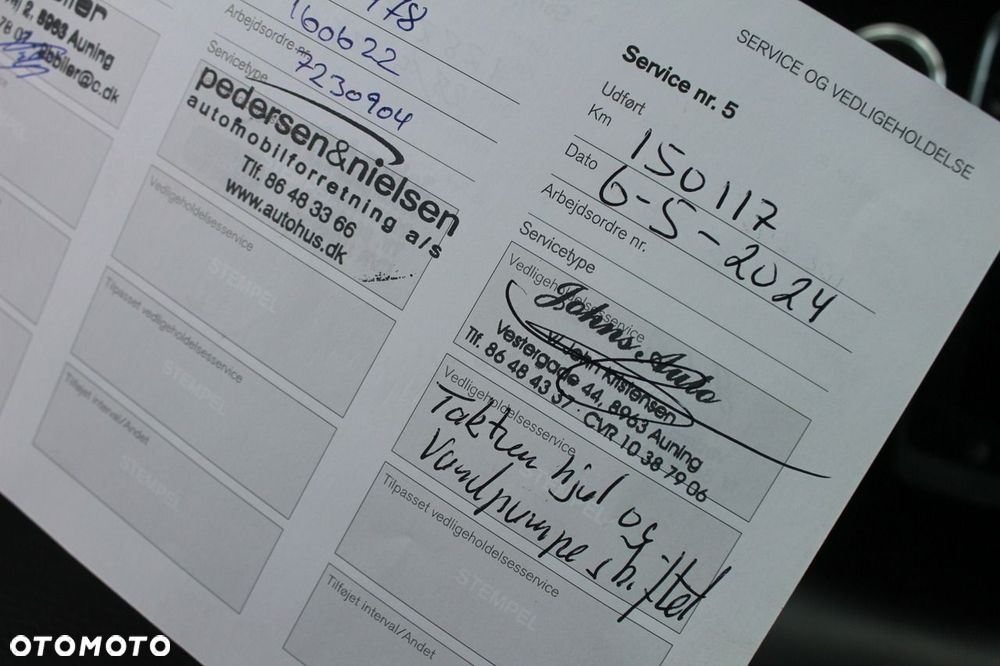 2, 8963 Auning
biler@c.dk
178
160622
Arbejdsordre nr.
7230904
Servicetype
pedersen&nielsen
automobilforretning a/s
Tlf. 86 48 33 66
www.autohus.dk
Vedligeholdelsesservice
STEMPEL
Tilpasset vedligeholdelsesservice
STEMPEL
Tilføjet interval/Andet
STEMPEL
SERVICE OG VEDLIGEHOLDELSE
Service nr. 5
Udført
Km
150117
Dato
6-5-2024
Arbejdsordre nr.
Servicetype
Vedligeholdelsesservice
Johns Auto
V/ John Kristensen
Vestergade 44, 8963 Auning
Tlf. 86 48 43 37 · CVR 10 38 79 06
Vedligeholdelsesservice
hjul og
Vandpumpe skiftet
Tilpasset vedligeholdelsesservice
STEMPEL
Tilføjet interval/Andet
OTOMOTO